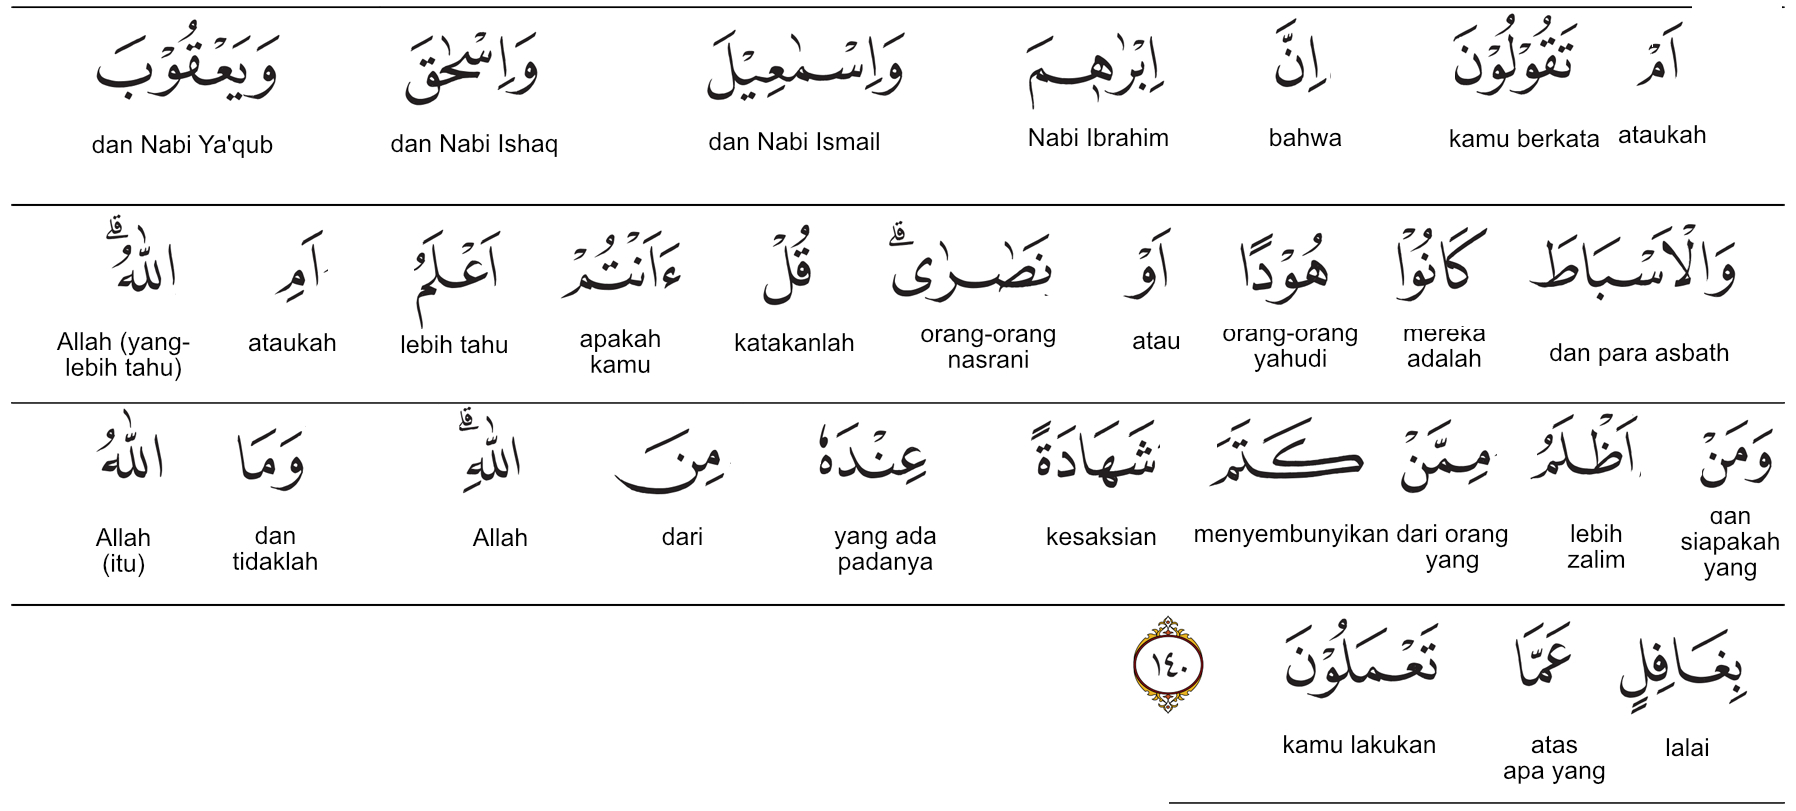 اَمْ تَقُوْلُوْنَ اِنَّ اِبْرٰهٖمَ وَاِسْمٰعِيْلَ وَاِسْحٰقَ وَيَعْقُوْبَ
ataukah kamu berkata bahwa Nabi Ibrahim dan Nabi Ismail dan Nabi Ishaq dan Nabi Ya'qub
وَالْاَسْبَاطَ كَانُوْا هُوْدًا اَوْ نَصٰرٰى ۗ قُلْ ءَاَنْتُمْ اَعْلَمُ اَمِ اللّٰهُ ۗ
dan para asbath mereka adalah orang-orang yahudi atau orang-orang nasrani katakanlah apakah kamu lebih tahu ataukah Allah (yang-lebih tahu)
وَمَنْ اَظْلَمُ مِمَّنْ كَتَمَ شَهَادَةً عِنْدَهٗ مِنَ اللّٰهِ ۗ وَمَا اللّٰهُ
dan siapakah yang lebih zalim dari orang yang menyembunyikan kesaksian yang ada padanya dari Allah dan tidaklah Allah (itu)
بِغَافِلٍ عَمَّا تَعْمَلُوْنَ ١٤٠
lalai atas apa yang kamu lakukan